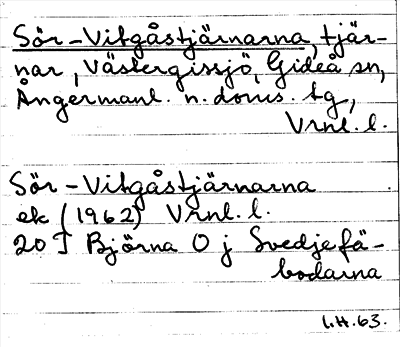 Sör-Vitgåstjärnarna, tjär-
nar, Västergissjö, Gideå sn,
Ångermanl. n. doms. tg,
Vrnl. l.
Sör-Vitgåstjärnarna
ek (1962) Vrnl. l.
20 I Björna O j Svedjefä-
bodarna
L.H. 63.